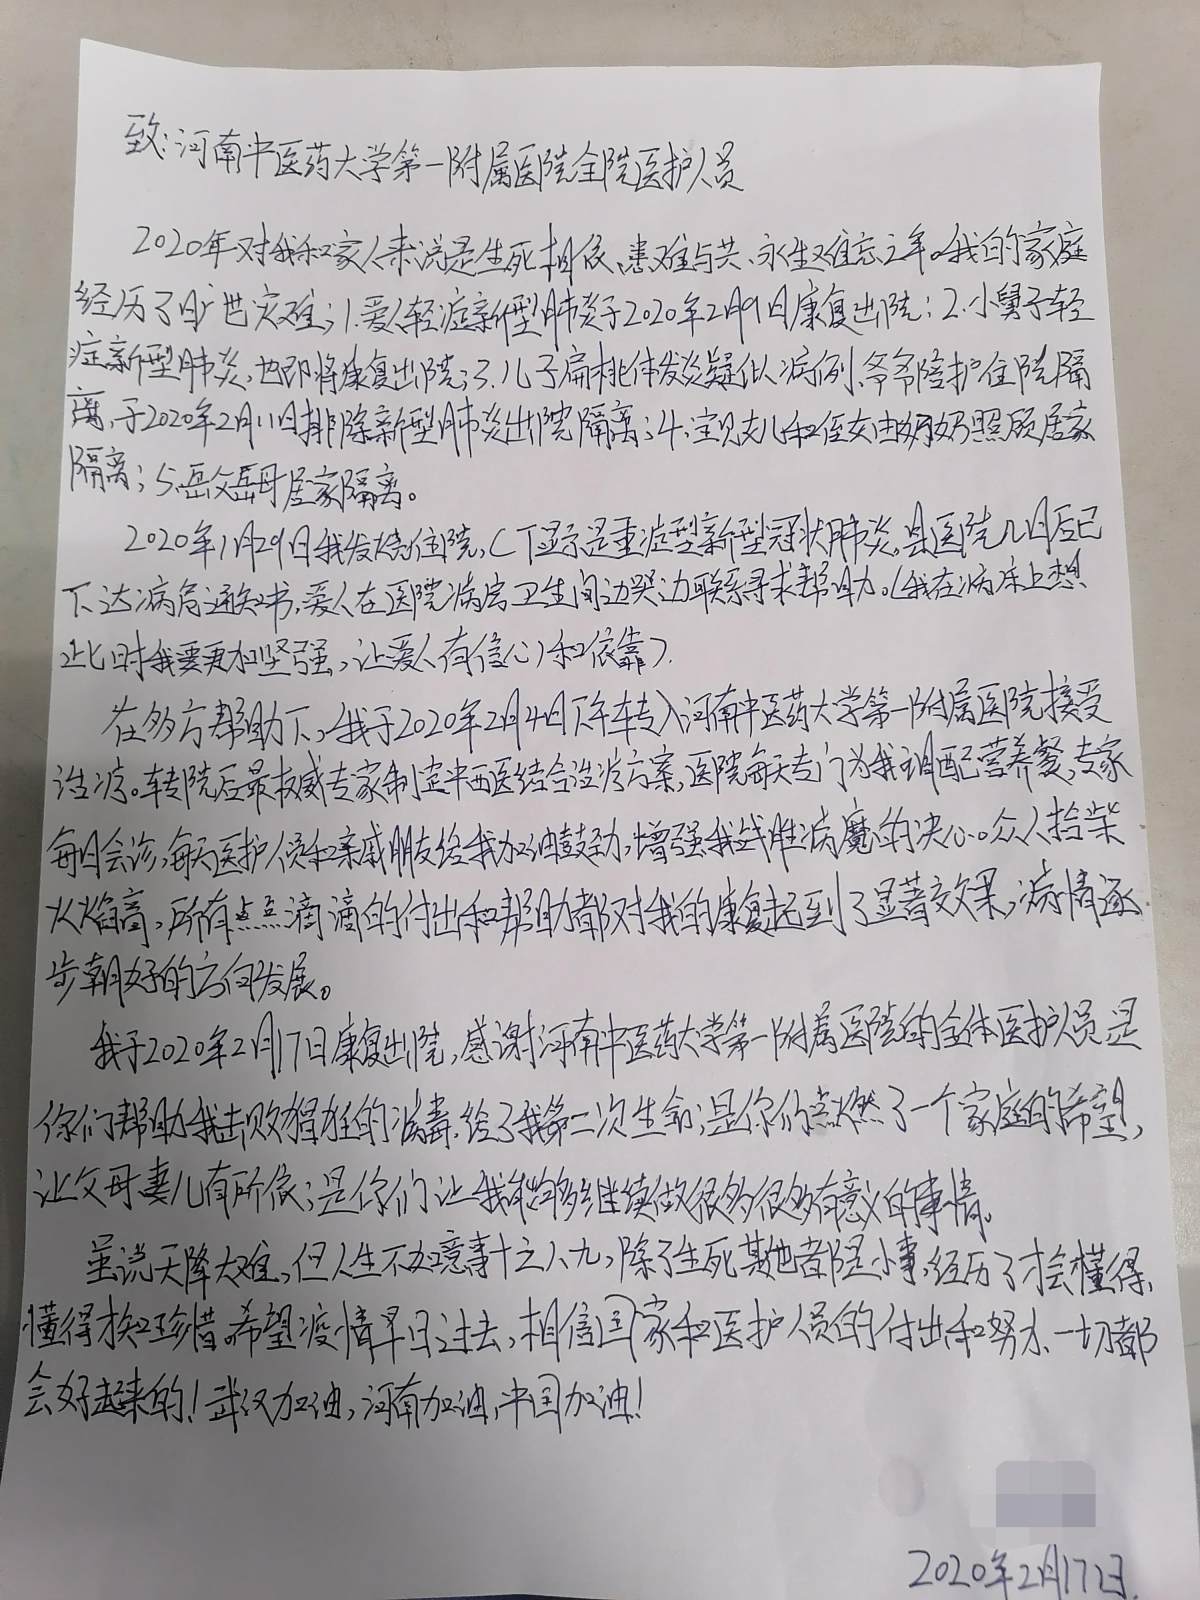 致:河南中医药大学第一附属医院全院医护人员
2020年对我和家人来说是生死相依、患难与共、永生难忘之年。我的家庭
经历了旷世灾难;1.爱人轻症新型肺炎于2020年2月9日康复出院;2.小舅子轻
症新型肺炎,也即将康复出院;3.儿子扁桃体发炎疑似病例,爷爷陪护住院隔
离,于2020年2月11日排除新型肺炎出院隔离;4.宝贝女儿和侄女由奶奶照顾居家
隔离;5.岳父岳母居家隔离。
2020年1月29日我发烧住院,CT显示是重症型新型冠状肺炎,县医院几日后已
下达病危通知书,爱人在医院病房卫生间边哭边联系寻求帮助。(我在病床上想
此时我要更加坚强,让爱人有信心和依靠)。
在多方帮助下,我于2020年2月4日下午转入河南中医药大学第一附属医院接受
治疗。转院后最权威专家制定中西医结合治疗方案,医院每天专门为我调配营养餐,专家
每日会诊,每天医护人员和亲戚朋友给我加油鼓劲,增强我战胜病魔的决心。众人拾柴
火焰高,所有点点滴滴的付出和帮助都对我的康复起到了显著效果,病情逐
步朝好的方向发展。
我于2020年2月17日康复出院,感谢河南中医药大学第一附属医院的全体医护人员是
你们帮助我击败猖狂的病毒.给了我第二次生命;是你们点燃了一个家庭的希望,
让父母妻儿有所依;是你们让我能够继续做很多很多有意义的事情。
虽说天降大难,但人生不如意事十之八九,除了生死其他都是小事,经历了才会懂得,
懂得择珍惜。希望疫情早日过去,相信国家和医护人员的付出和努力、一切都
会好起来的!武汉加油,河南加油,中国加油!
2020年2月17日.